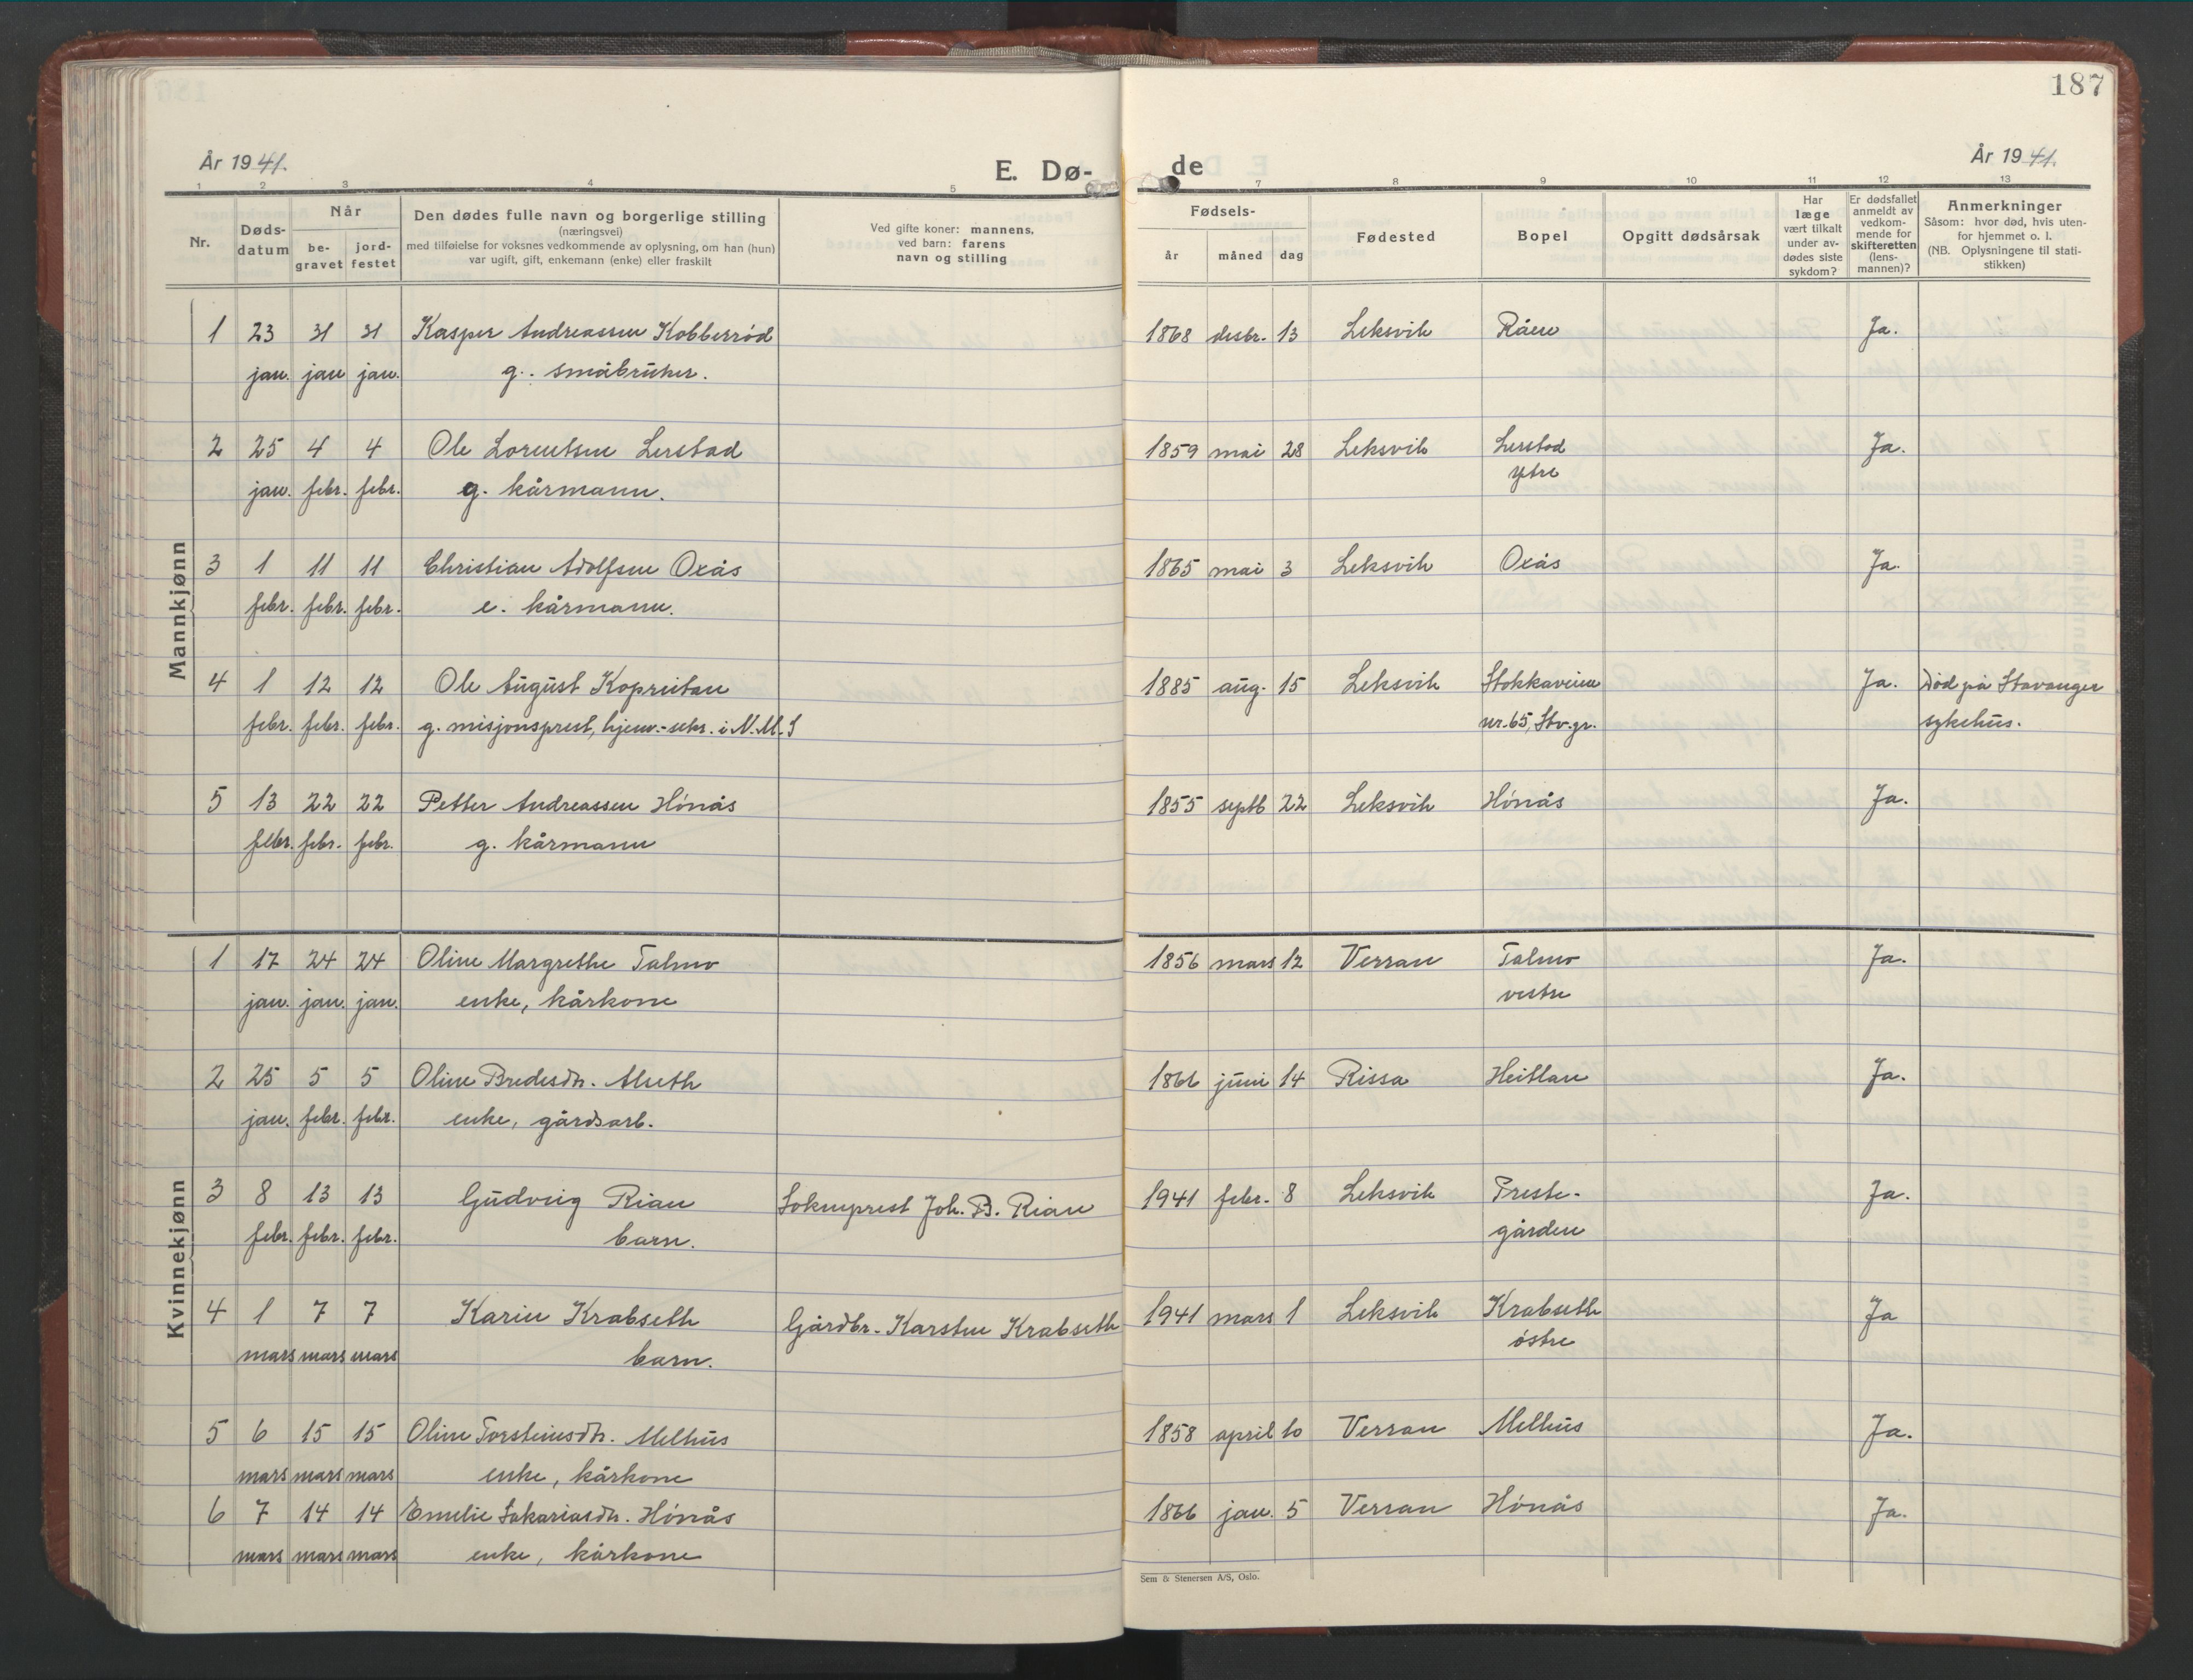 187
År 1941.
E. Dø-
de
År 1941.
1 2 3 4 5 7 8 9 10 11 12 13
Nr.
Døds-
datum
Når
be-
gravet
jord-
festet
Den dødes fulle navn og borgerlige stilling
(næringsvei)
med tilføielse for voksnes vedkommende av oplysning, om han (hun)
var ugift, gift, enkemann (enke) eller fraskilt
Ved gifte koner: mannens,
ved barn: farens
navn og stilling
Fødsels-
år måned dag
Fødested
Bopel
Opgitt dødsårsak
Har
læge
vært tilkalt
under av-
dødes siste
sykdom?
Er dødsfallet
anmeldt av
vedkom-
mende for
skifteretten
(lens-
mannen)?
Anmerkninger
Såsom: hvor død, hvis uten-
for hjemmet o. l.
(NB. Oplysningene til stati-
stikken)
Mannkjønn
1 23 31 31 Kasper Andreassen Kobberrød 1868 desbr. 13 Leksvik Råen Ja.
jan. jan jan. g. småbruker.
2 25 4 4 Ole Lorentsen Lerstad 1859 mai 28 Leksvik Lerstad Ja.
jan. febr. febr. g. kårmann. ytre
3 1 11 11 Christian Adolfsen Oxås 1865 mai 3 Leksvik Oxås Ja.
febr. febr. febr. e. kårmann.
4 1 12 12 Ole August Kopreitan 1885 aug. 15 Leksvik Stokkaveien Ja. Død på Stavanger
febr. febr. febr. g. misjonsprest, hjem.-sekr. i N.M.S nr. 65, Stv.gr. sykehus.
5 13 22 22 Petter Andreassen Hónås 1855 septb 22 Leksvik Hónås Ja.
febr. febr. febr. g. kårmann
Kvinnekjønn
1 17 24 24 Oline Margrethe Talmo 1856 mars 12 Verran Talmo Ja.
jan. jan. jan. enke, kårkone vestre
2 25 5 5 Oline Bredesdtr. Aluth 1866 juni 14 Rissa Heitlan Ja.
jan. febr. febr. enke, gårdsarb.
3 8 13 13 Gudveig Rian Sokneprest Joh. B. Rian 1941 febr. 8 Leksvik Preste- Ja.
febr. febr. febr. barn. gården
4 1 7 7 Karin Krabseth Gårdbr. Karsten Krabseth 1941 mars 1 Leksvik Krabseth Ja
mars mars mars barn. østre
5 6 15 15 Oline Torsteinsdtr. Melhus 1858 april 10 Verran Melhus Ja.
mars mars mars enke, kårkone
6 7 14 14 Emelie Sakariasdtr. Hónås 1866 jan. 5 Verran Hónås Ja.
mars mars mars enke, kårkone
Sem & Stenersen A/S, Oslo.